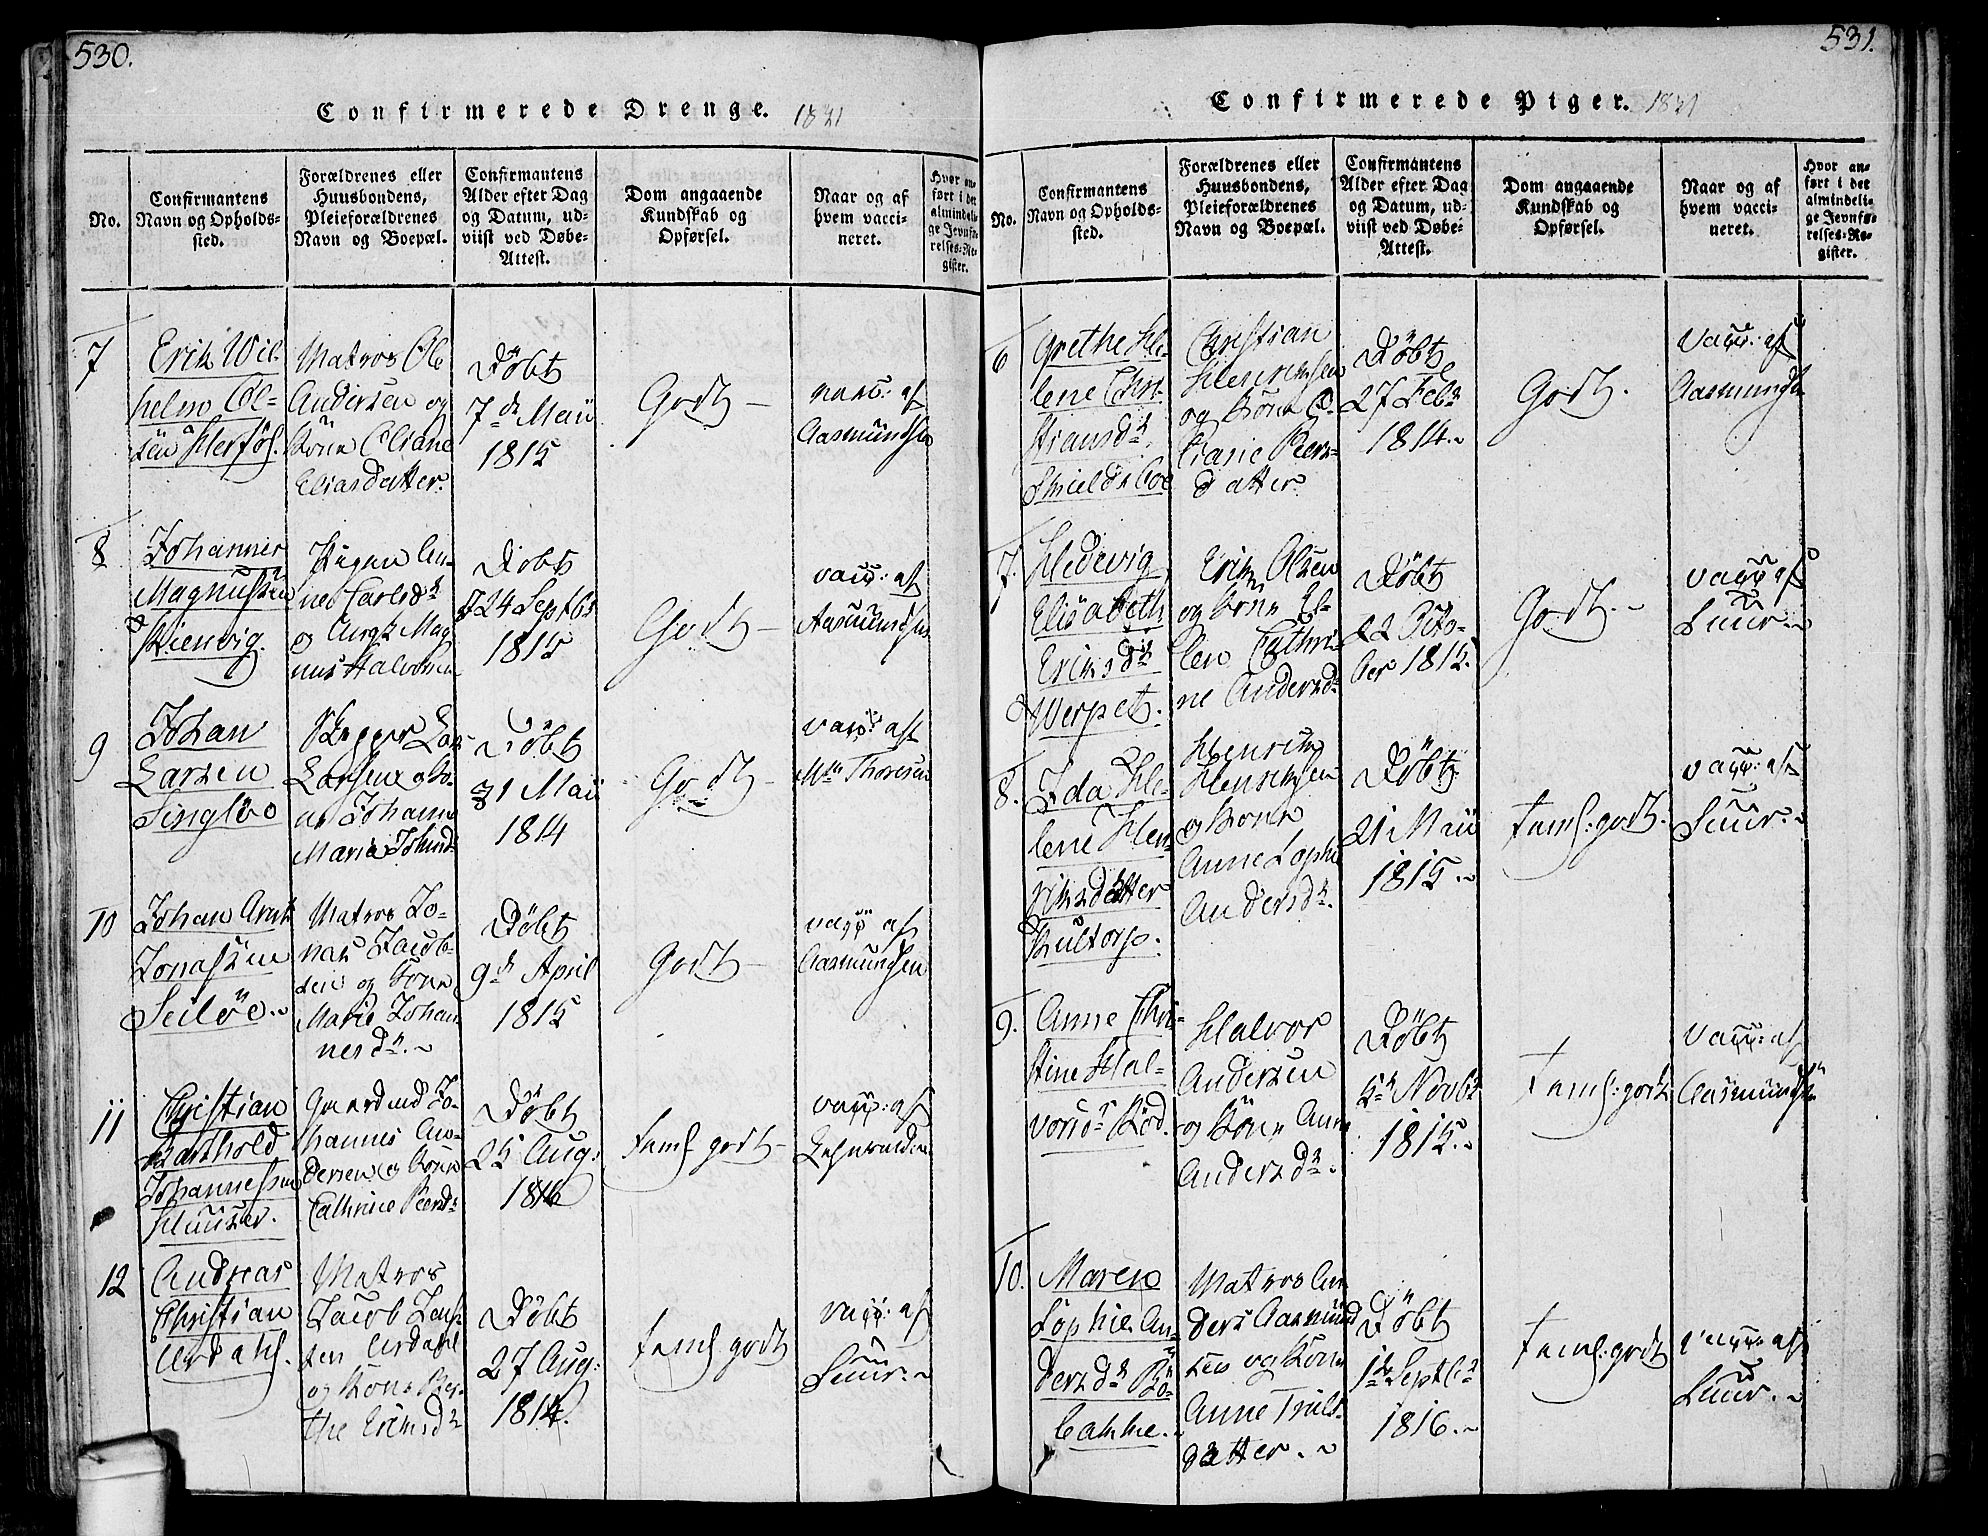 530.
Confirmerede Drenge. 1831
No.
Confirmantens
Navn og Opholds-
sted.
Forældrenes eller
Huusbondens,
Pleieforældrenes
Navn og Boepæl.
Confirmantens
Alder efter Dag
og Datum, ud-
viist ved Døbe-
Attest.
Dom angaaende
Kundskab og
Opførsel.
Naar og af
hvem vacci-
neret.
Hvor an-
ført i det
almindeli-
ge Jevnfø-
relses-Re-
gister.
7
Erik Wil-
helm Ol-
sen
Matros Ole
Andersen og
Kone Eliane
Eliasdatter.
Döbt
7de Maii
1815
Godt
vacc: af
Aasmundsen
8
Johannes
Magnussen
Kienvig.
Pigen An-
ne Carlsdr
og Mag-
nus Halvorsen
Döbt
24 Septbr
1815
Godt
vacc: af
Aasmundsen
9
Johan
Larsen
Singløo
Larsen og Ko-
ne Johanne
Maria
Döbt
31 Maii
1814
Godt
vacc: af
Thoresen
10
Johan Arnt
Jonassen
Seiløe.
Matros Jo-
nas Jacob-
sen og Kone
Marie Johan-
nesdr.
Döbt
9de April
1815
Godt
vacc: af
Aasmundsen
11
Christian
Barthold
Johannessen
Huuser.
Gaardmd Jo-
hannes An-
dersen og Kone
Cathrine Peersdr
Döbt
25 Aug:
1816
Teml. godt
vacc: af
12
Andreas
Christian
Urdahl.
Matros
Jacob Jens-
sen Urdahl
og Kone Ber-
the Eriksdr
Döbt
27 Aug:
1814.
Teml. godt
vacc: af
Suur.
531.
Confirmerede Piger. 1831
No.
Confirmantens
Navn og Opholds-
sted.
Forældrenes eller
Huusbondens,
Pleieforældrenes
Navn og Boepæl.
Confirmantens
Alder efter Dag
og Datum, ud-
viist ved Døbe-
Attest.
Dom angaaende
Kundskab og
Opførsel.
Naar og af
hvem vacci-
neret.
Hvor an-
ført i det
almindeli-
ge Jevnfø-
relses-Re-
gister.
6
Grethe He-
lene Chri-
stiansdr
Christian
Henriksen
og Kone
Peers-
datter
Döbt
27 Febr
1814.
Godt.
vacc: af
Aasmundsen
7.
Hedevig
Elisabeth
Eriksdr
Werpet.
Erik Olsen
og Kone El-
len Cathri-
ne Andersdr
Döbt
22 Octo-
ber 1815.
Godt.
vacc af
Suur.
8.
Ida He-
lene Hen-
riksdatter
Kultorp.
Henrik
Hensen
og Kone
Anne Sophie
Andersdr.
Döbt
21 Maii
1815.
Teml: godt.
vacc: af
Suur.
9.
Anne Chri-
stine Hal-
vorsdr Röd.
Halvor
Andersen
og Kone Anne
Andersdr.
Döbt
5de Novbr
1815.
Teml: godt
vacc: af
Aasmundsen
10.
Maren
Sophie An-
dersdr Bö-
Matros An-
ders Aasmund-
sen og Kone
Anne Truls-
datter.
Döbt
1de Septbr
1816.
Teml: godt
vacc: af
Suur.